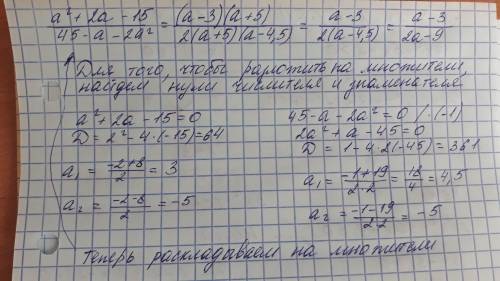 a² + 2a - 15 / 45 - a - 2a² = (a - 3)(a + 5) / 2(a + 5)(a - 4,5) = a - 3 / 2(a - 4,5) = a - 3 / 2a - 9
Для того, чтобы разложить на множители,
найдем нули числителя и знаменателя
a² + 2a - 15 = 0
D = 2² - 4·(-15) = 64
a₁ = -2+8 / 2 = 3
a₂ = -2-8 / 2 = -5
45 - a - 2a² = 0 /·(-1)
2a² + a - 45 = 0
D = 1 - 4·2(-45) = 361
a₁ = -1+19 / 2·2 = 18 / 4 = 4,5
a₂ = -1-19 / 2·2 = -5
Теперь раскладываем на множители